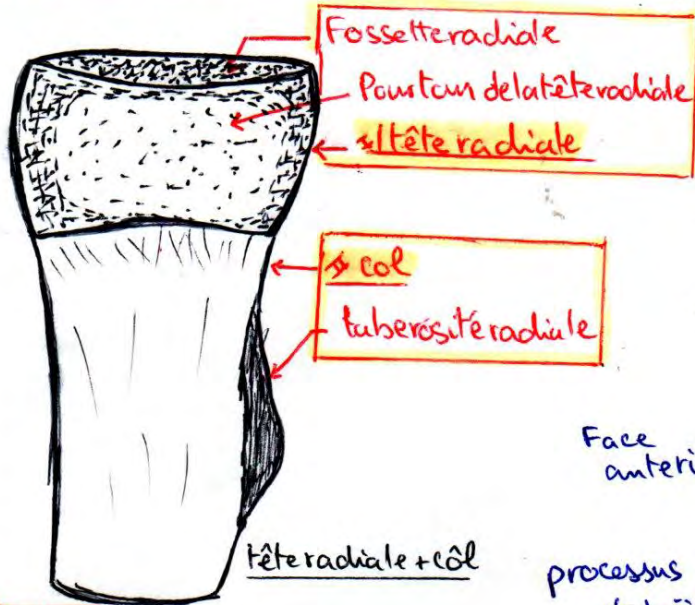 Fossette radiale
Pourtour de la tête radiale
I/ tête radiale
II col
tuberosité radiale
Face
anteri
tête radiale + côl
processus